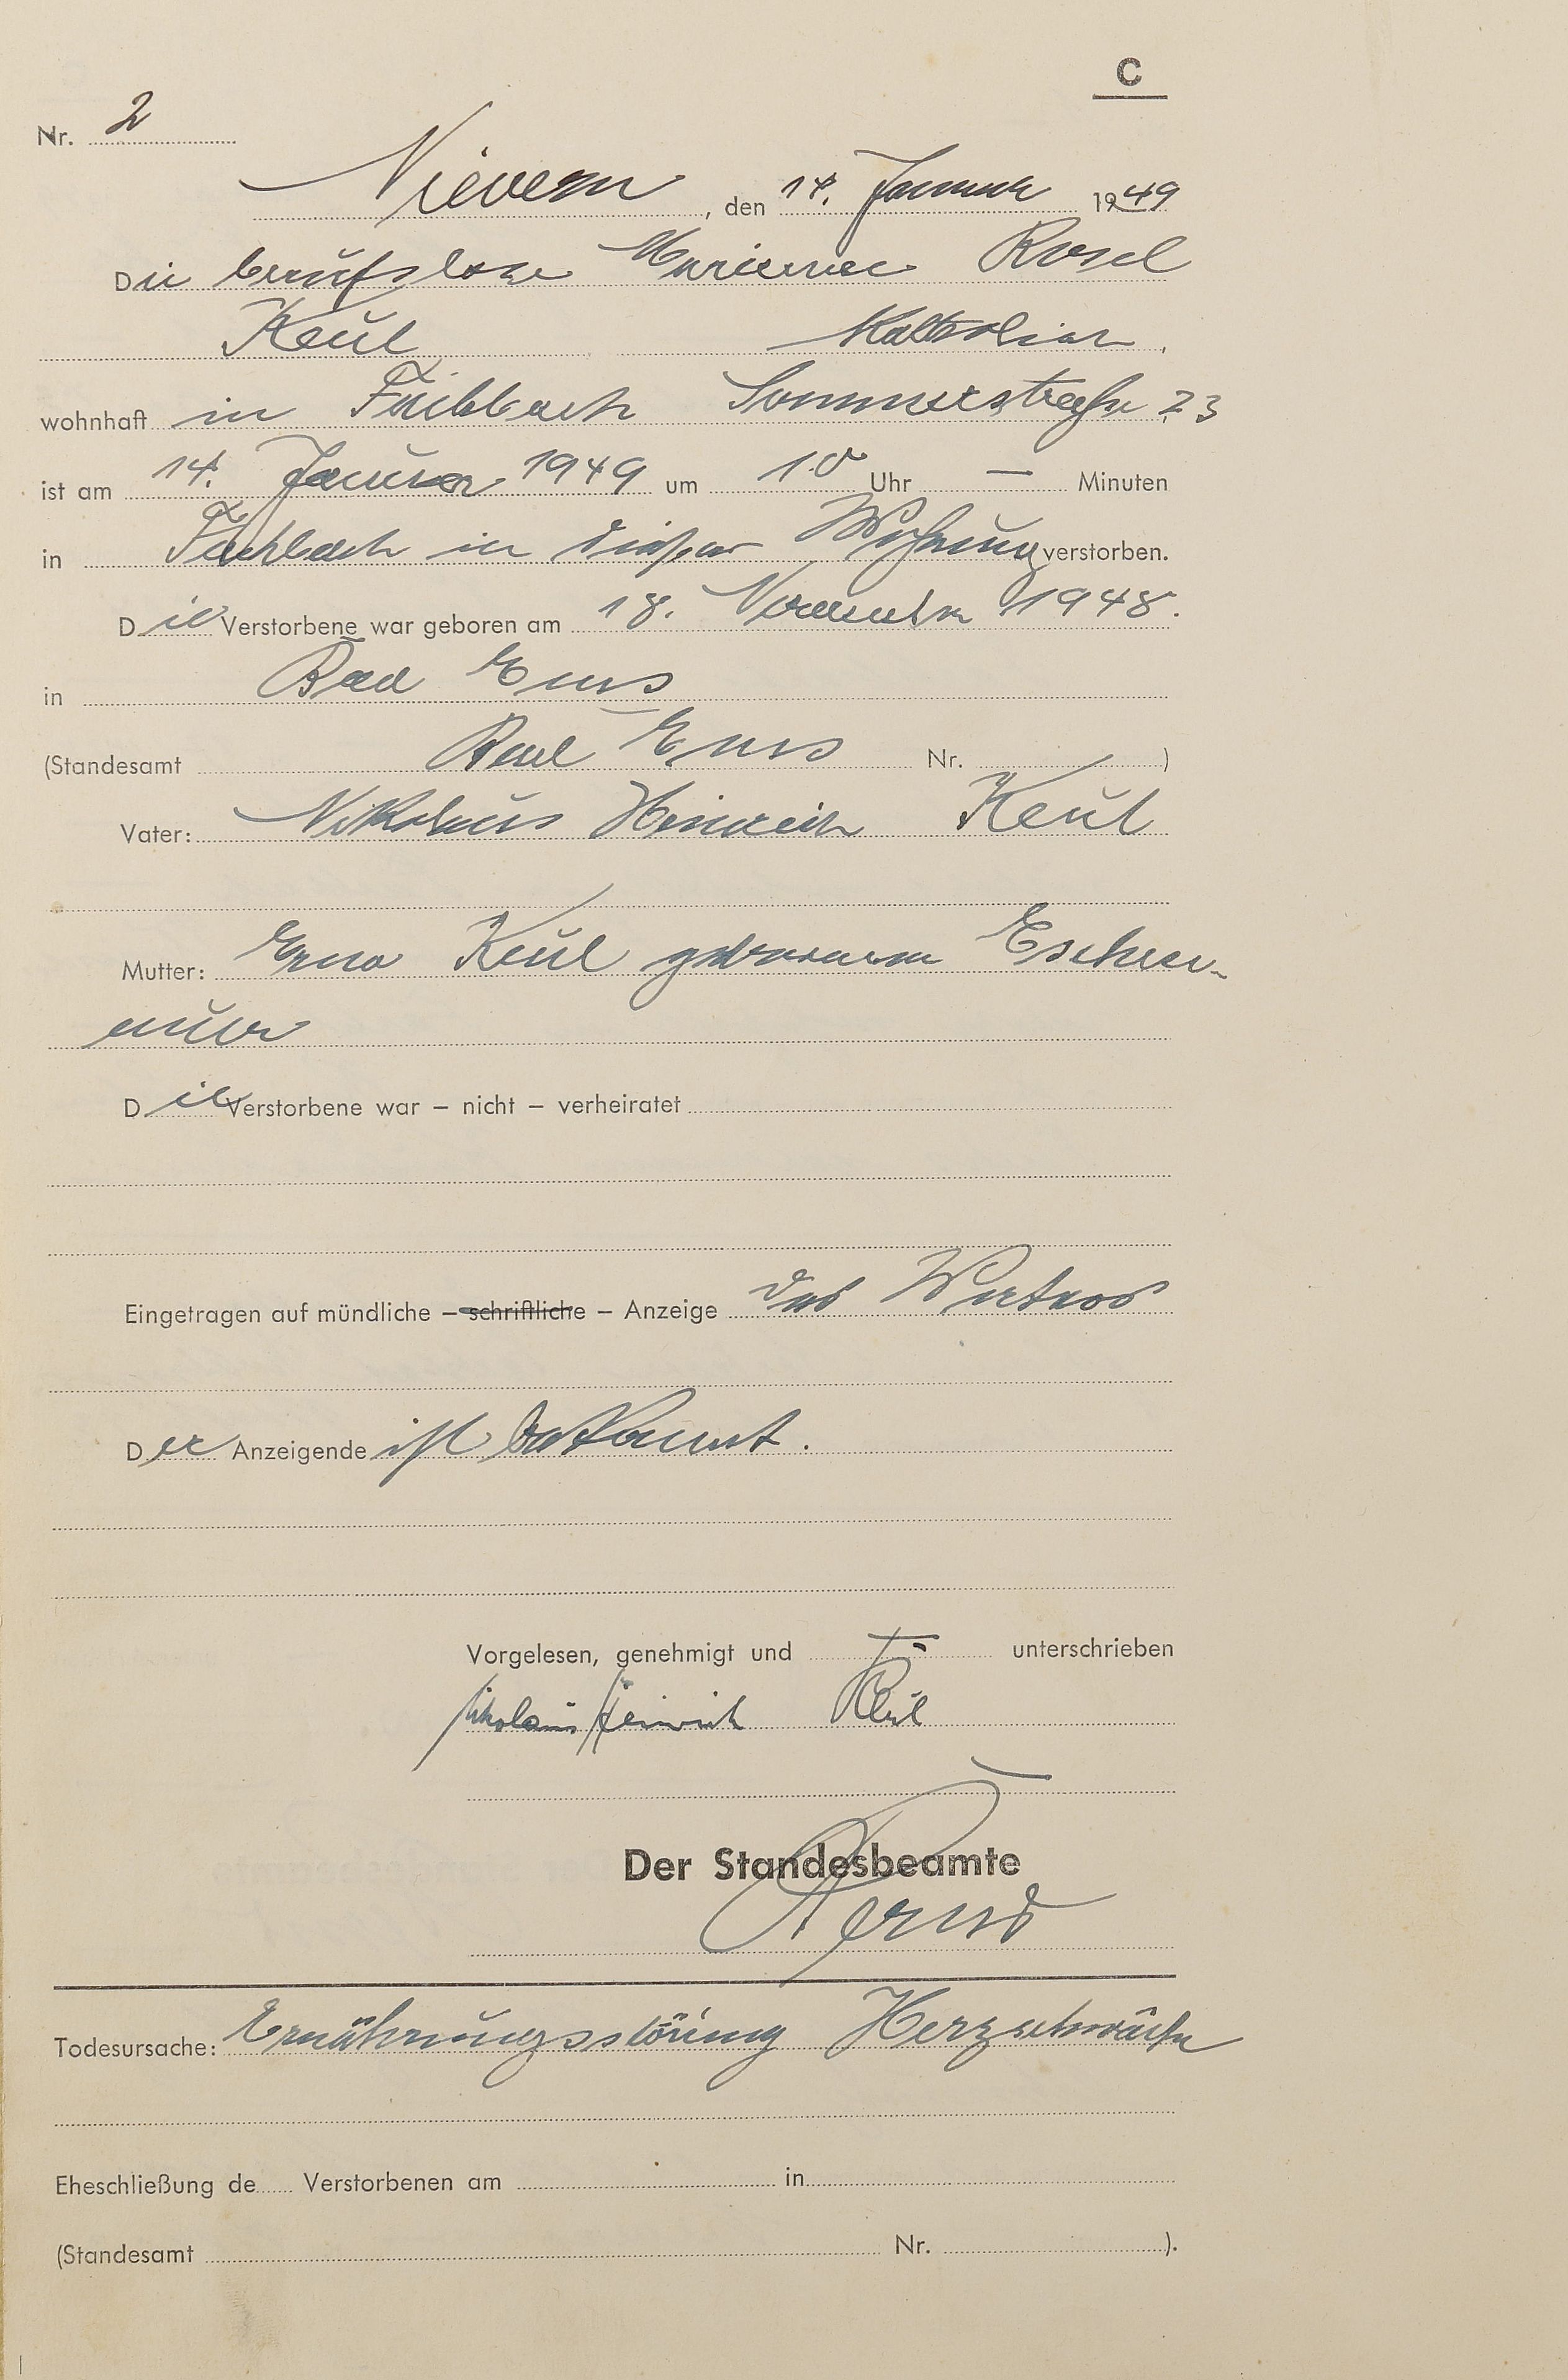 C
Nr. 2
Nievern, den 14. Januar 1949
Die berufslose Marianne Rosel
Keul Katholisch,
wohnhaft in Fachbach Sommerstraße 23
ist am 14. Januar 1949 um 10 Uhr — Minuten
in Fachbach in dieser Wohnung verstorben.
Die Verstorbene war geboren am 18. November 1948.
in Bad Ems
(Standesamt Bad Ems Nr. )
Vater: Nikolaus Heinrich Keul
Mutter: Erna Keul geborene Eschen-
auer
Die Verstorbene war – nicht – verheiratet
Eingetragen auf mündliche – schriftliche – Anzeige des Vaters
Der Anzeigende ist bekannt.
Vorgelesen, genehmigt und unterschrieben
Nikolaus Heinrich Keul
Der Standesbeamte
Todesursache: Ernährungsstörung Herzschwäche
Eheschließung de Verstorbenen am in
(Standesamt Nr. ).